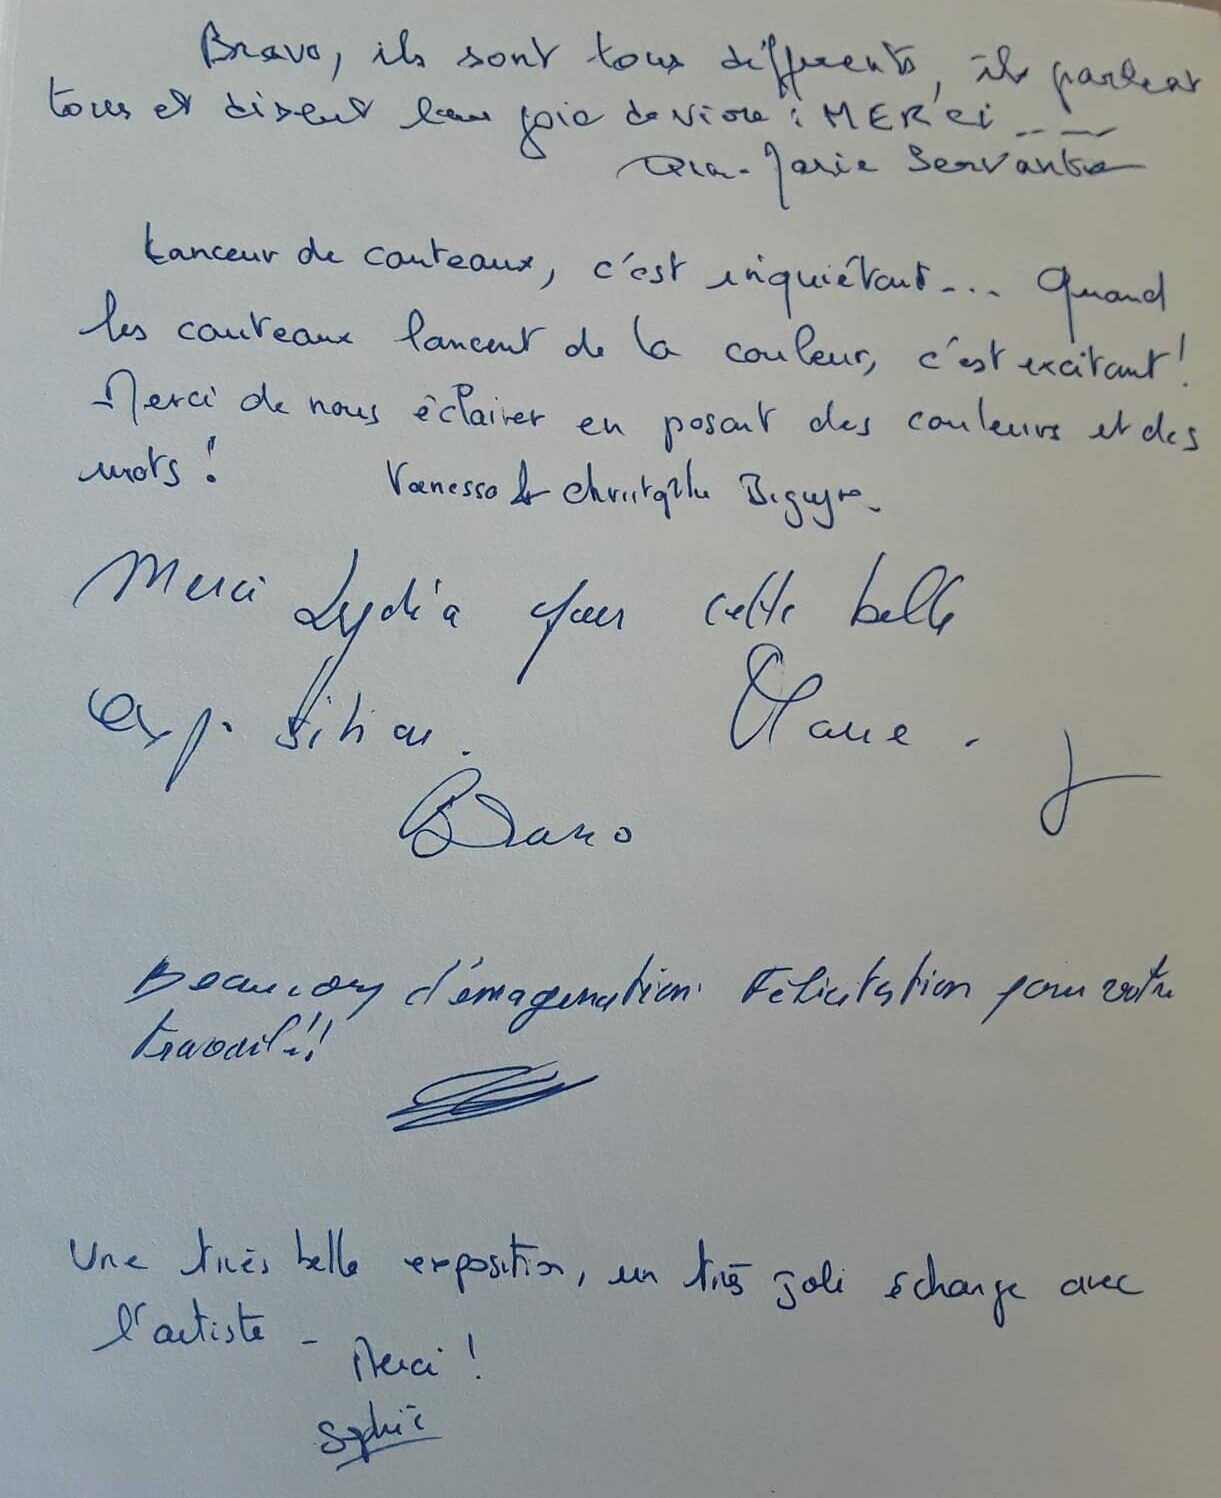 Bravo, ils sont tous différents, ils parlent
tous et disent leur joie de vivre : MERCI...
Marie Servant
Lanceur de couteaux, c'est inquiétant... Quand
les couteaux lancent de la couleur, c'est excitant !
Merci de nous éclairer en posant des couleurs et des
mots ! Vanessa & Christophe
Merci Lydia pour cette belle
exposition.
Bravo
Beaucoup d'émagination. Félicitation pour votre
travail !!
Une très belle exposition, un très joli échange avec
l'artiste -
Merci !
Sophie